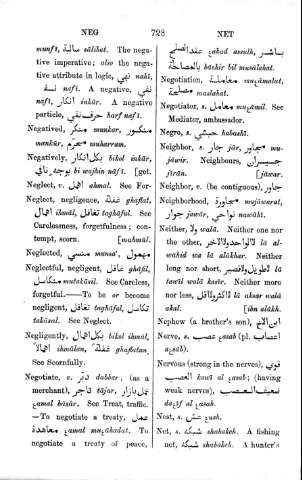 NEG 728 NET
munfī, سالبة sālibet. The nega-
tive imperative; also the nega-
tive attribute in logic, نهي nahī,
نفي nefī. A negative, نفي
nefī, انكار inkār. A negative
particle, حرف نفي harf nefī.
Negatived, منكور munkar, منكر
mankūr, محرم muharram.
Negatively, بكل انكار bikol inkār,
بوجه نافي bi wajhin nāfī. [get.
Neglect, v. اهمل ahmal. See For-
Neglect, negligence, غفلة ghaflat,
اهمال ihmāl, تغافل taghāful. See
Carelessness, forgetfulness; con-
tempt, scorn. [mahmūl.
Neglected, منسي mansī, مهمول
Neglectful, negligent, غافل ghāfil,
متكاسل mutakāsil. See Careless,
forgetful.—To be or become
negligent, تغافل taghāful, تكاسل
takāsul. See Neglect.
Negligently, بكل اهمال bikol ihmāl,
اهمالا ihmālan, غفلة ghafatan,
See Scornfully.
Negotiate, v. دبر dabbar; (as a
merchant), تاجر tājar, عمل بازار
ꜫamal bāzār. See Treat, traffic.
—To negotiate a treaty, عمل
معاهدة ꜫamal muꜫāhadat. To
negotiate a treaty of peace,
باشر ꜫakad assulh, عقد الصلح
بالمصالحة bāshir bil musālahat.
Negotiation, معاملة muꜫāmalat,
مصلحة maslahat.
Negotiator, s. معامل muꜫāmil. See
Mediator, ambassador.
Negro, s. حبشي habashī.
Neighbor, s. جار jār, مجاور mu-
jāwir. Neighbours, جيران
jīrān. [jāwar.
Neighbor, v. (be contiguous), جاور
Neighborhood, مجاورة mujāwarat,
جوار jawār, نواحي nawāhī.
Neither, ولا walā. Neither one nor
the other, لا الواحد ولا الاخر lā al-
wāhid wa lā alākhar. Neither
long nor short, لا طويل ولا قصير lā
tawīl walā kasīr. Neither more
nor less, لا اكثر ولا اقل lā aksar walā
akal. [ibn alākh.
Nephew (a brother's son), ابن الاخ
Nerve, s. عصب ꜫasab (pl. اعصاب
aꜫsāb).
Nervous (strong in the nerves), قوي
العصب kawī al ꜫasab; (having
weak nerves), ضعيف العصب
daꜫīf al ꜫasab.
Nest, s. عش ꜫush.
Net, s. شبكة shabakeh. A fishing
net, شبكة shabakeh. A hunter's